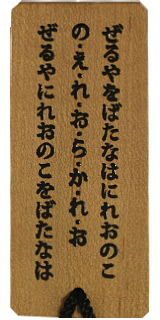 ぜるやをばたなはにれおのこ
の・え・れ・お・ら・か・れ・お
ぜるやにれおのこをばたなは